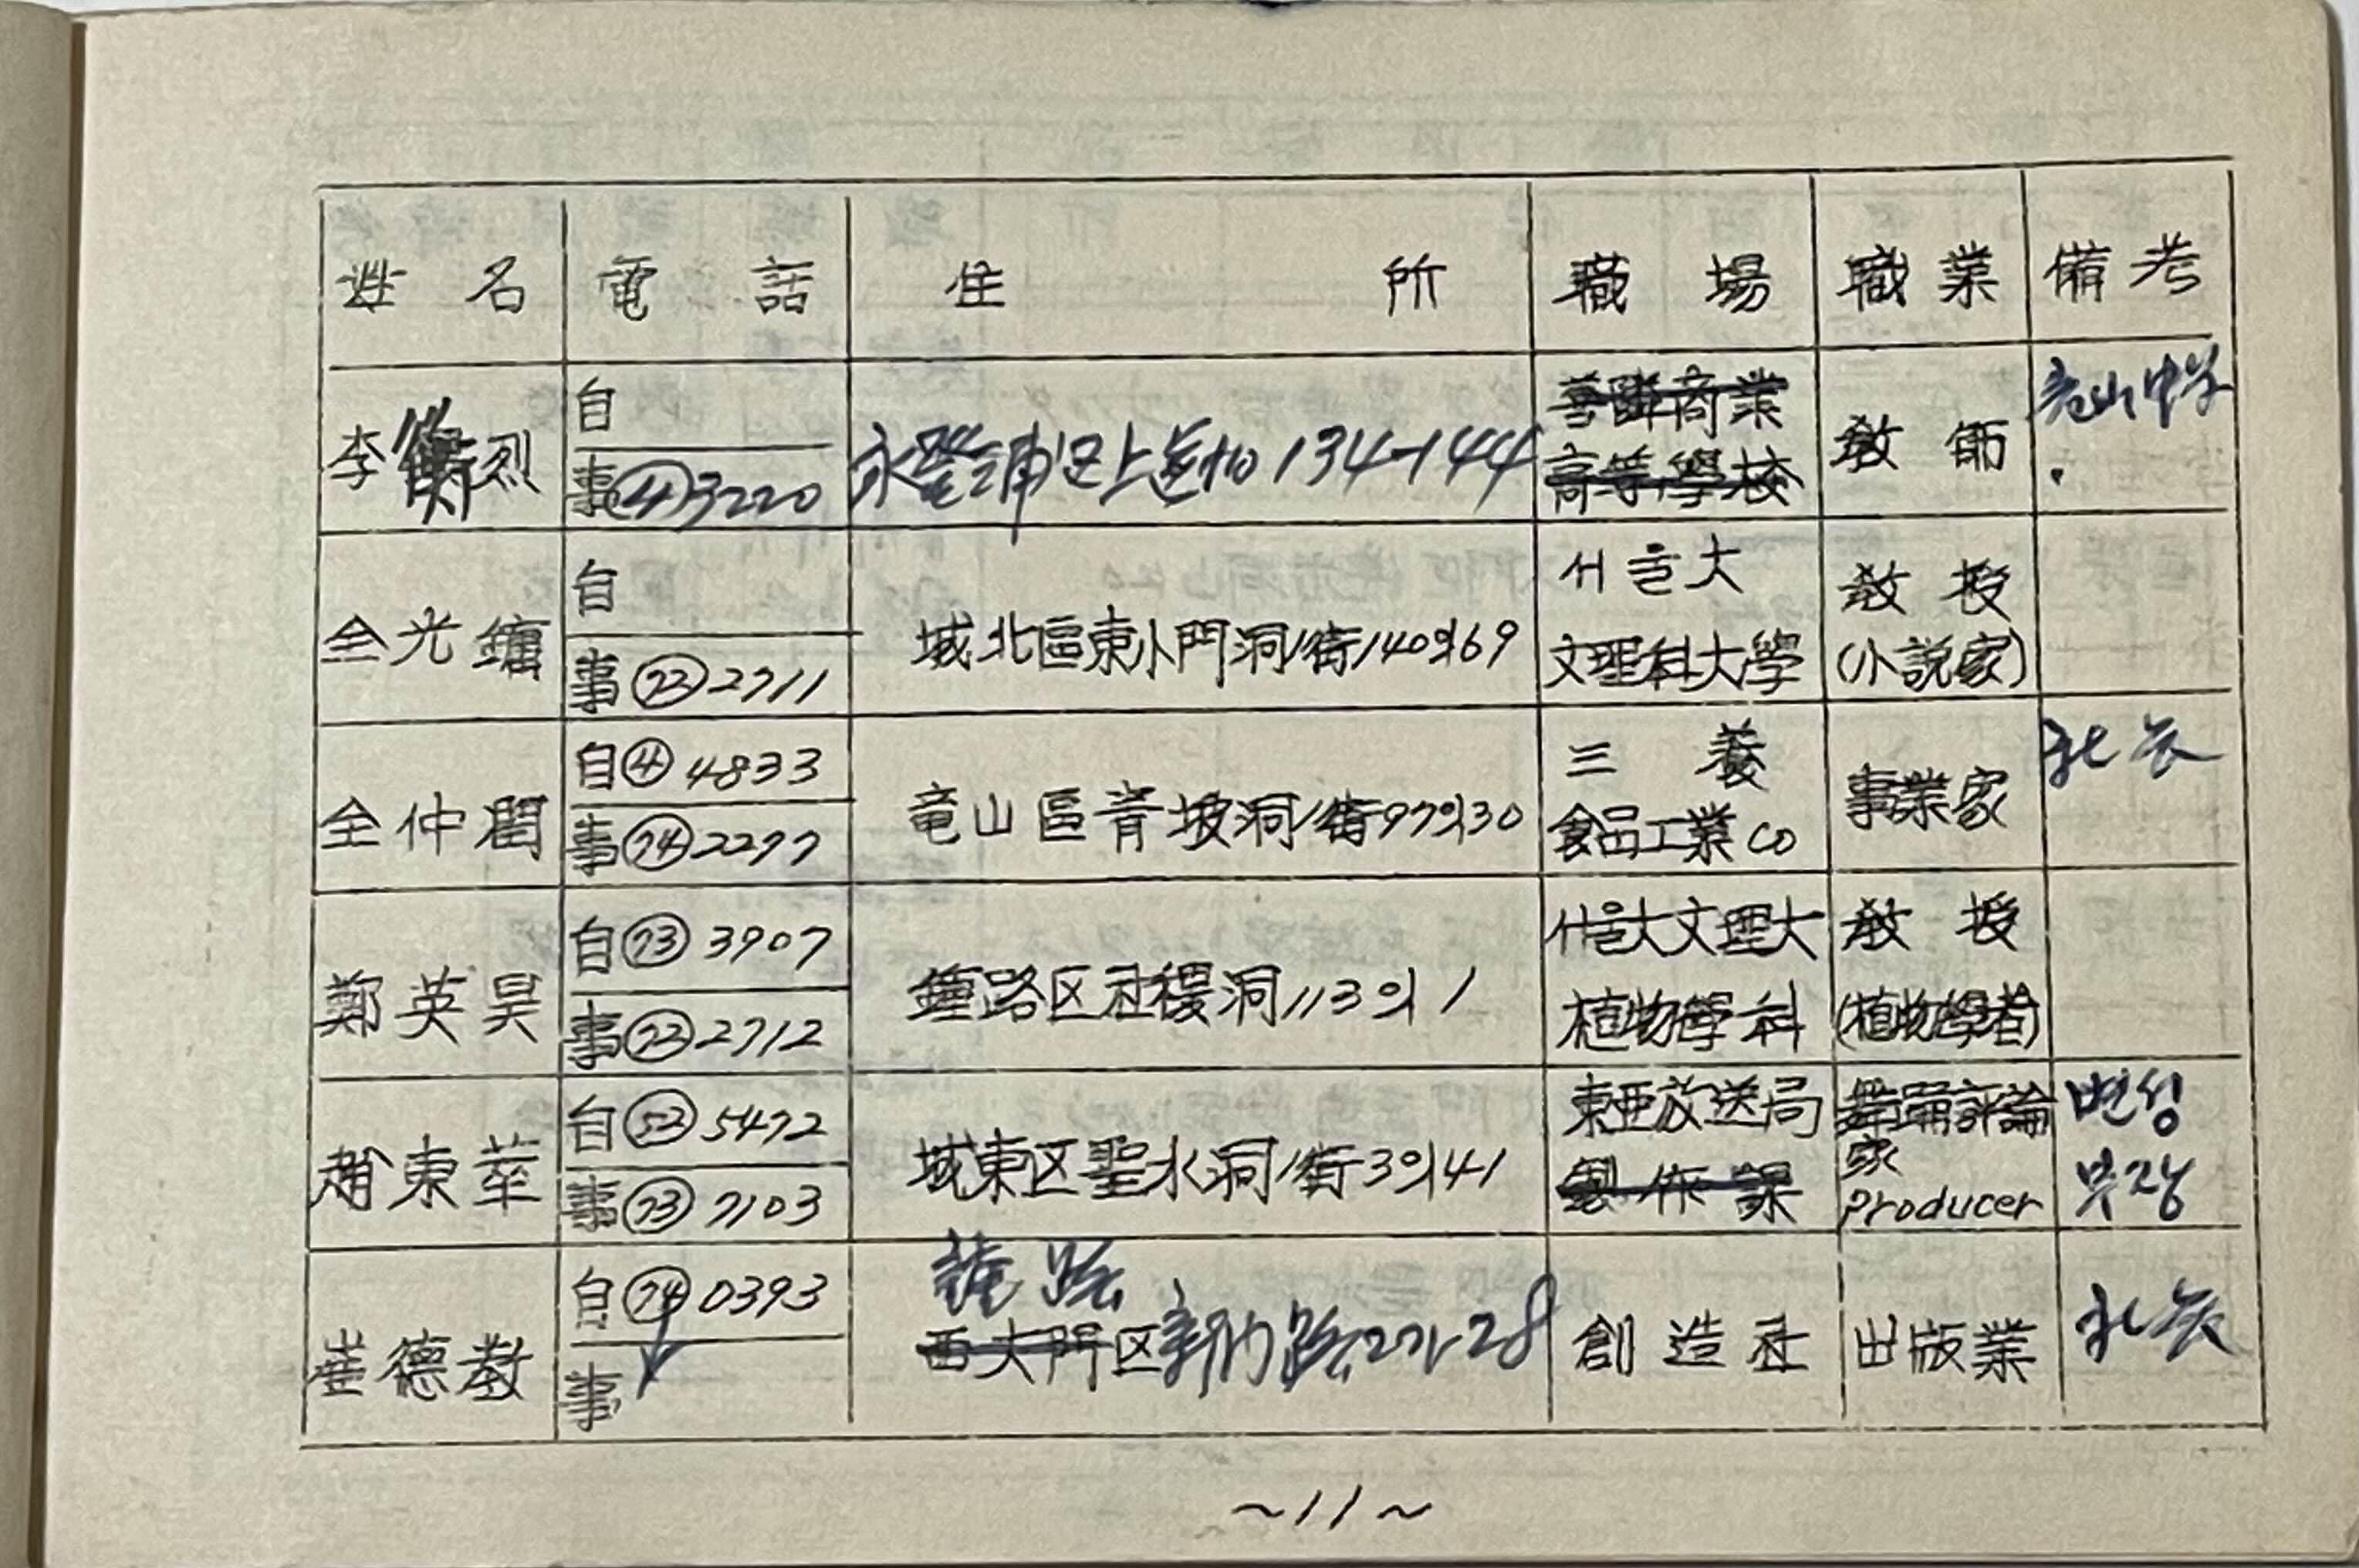 姓名 電話 住所 職場 職業 備考
李 烈 自 事 ④3220 永登浦区上道洞 134-144 善隣商業 高等學校 教師 中学
全光鏞 自 事 ㉒2711 城北區東小門洞1街140의69 서울大 文理科大學 教授 (小説家)
全仲閏 自 ④ 4833 事 74 2277 竜山區青坡洞1街97의30 三養 食品工業 CO 事業家 北
鄭英昊 自 73 3907 事 2712 鍾路区社稷洞113의1 서울大文理大 植物學科 教授 (植物學者)
趙東華 自 53 5472 事 73 7103 城東区聖水洞1街3의41 東亜放送局 製作課 舞踊評論家 Producer 편성 부장
崔德教 自 74 0393 事 鍾路 西大門区 新門路 28 創造社 出版業 北
~11~